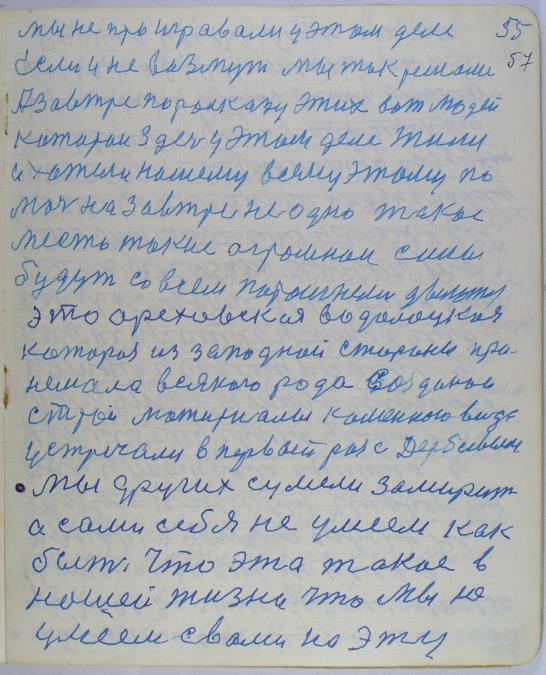 мы не проигравали у этом деле 55
если и не возмут мы так решали 57
А завтре порасказу этих вот людей
которои здесь у этом деле жили
и хотели нашему всему этому по
моч на завтре не одно такое
месть такие огромнои силы
будут со всем
это ореховская водолоцкая
которая из западной стороны при-
немала всякого рода создонои
строй материалы каменного виде
устречали в первый раз с Дербеным
Мы других сумели замирит
а сами себя не умеем как
быть. Что эта такое в
нашей жизни что мы не
умеем свами на эту